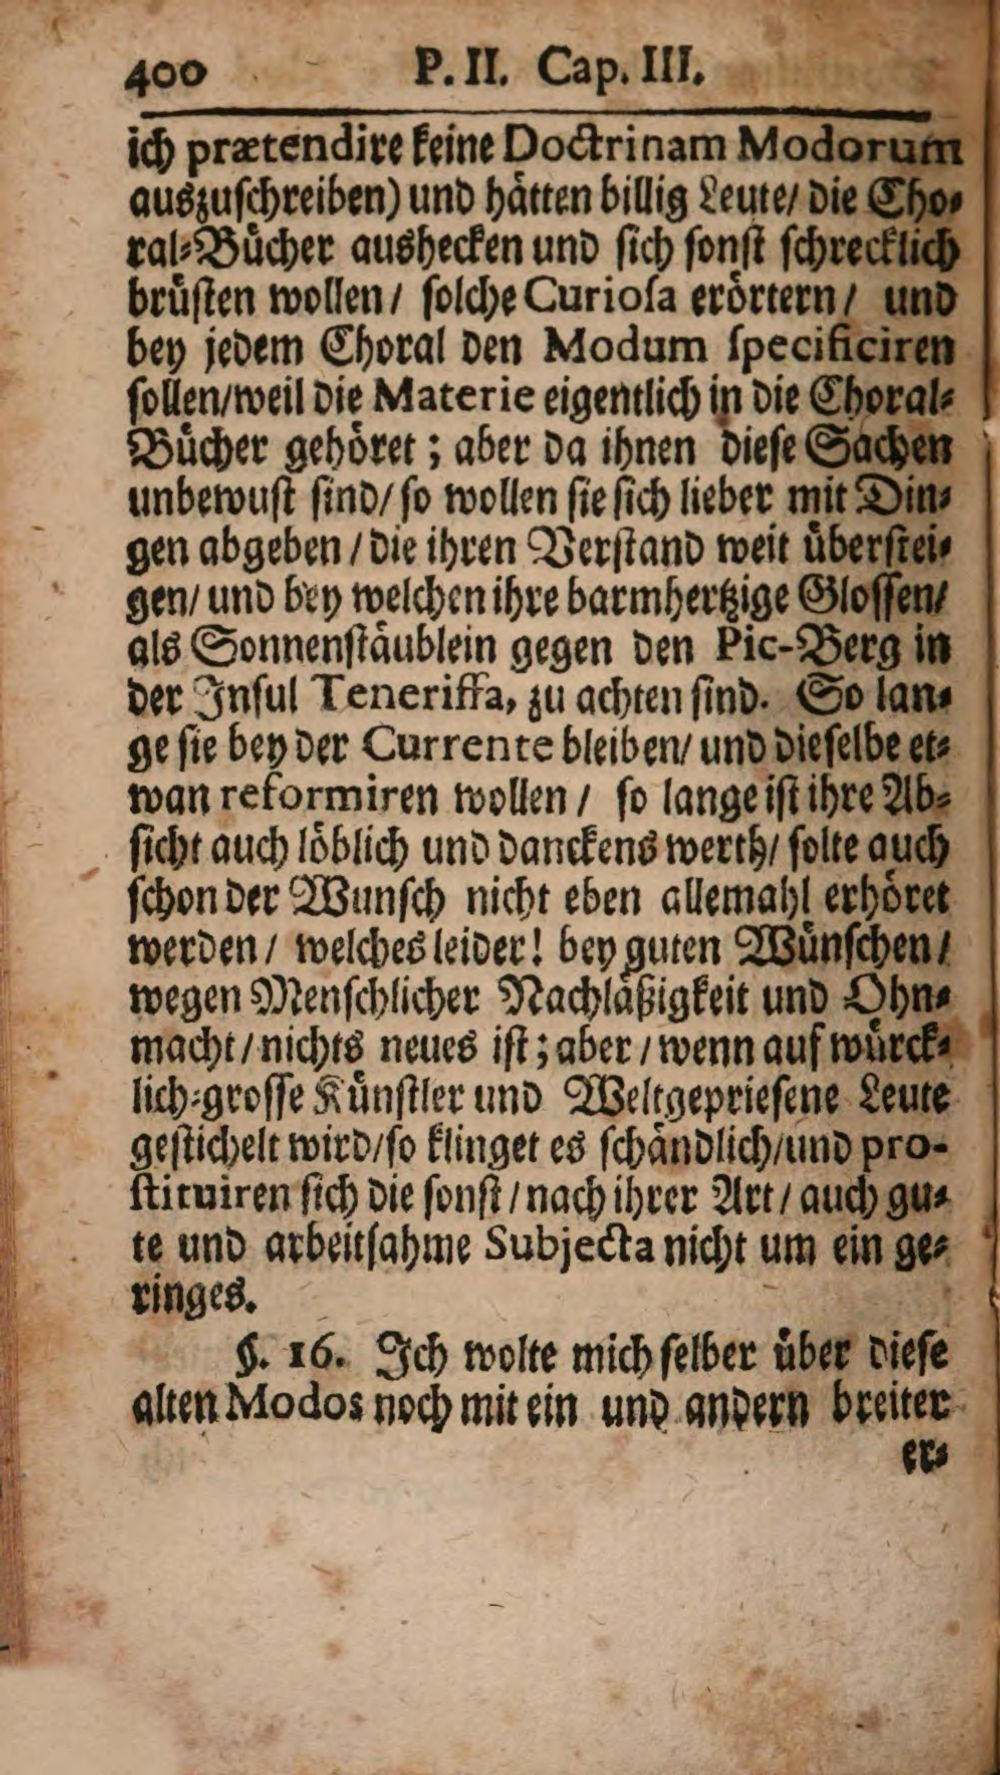 400 P. II. Cap. III.
ich prætendire keine Doctrinam Modorum
auszuschreiben) und hätten billig Leute/ die Cho-
ral-Bücher aushecken und sich sonst schrecklich
brüsten wollen / solche Curiosa erörtern / und
bey jedem Choral den Modum specificiren
sollen/weil die Materie eigentlich in die Choral-
Bücher gehöret ; aber da ihnen diese Sachen
unbewust sind/ so wollen sie sich lieber mit Din-
gen abgeben / die ihren Verstand weit überstei-
gen/ und bey welchen ihre barmhertzige Glossen/
als Sonnenstäublein gegen den Pic-Berg in
der Insul Teneriffa, zu achten sind. So lan-
ge sie bey der Currente bleiben/ und dieselbe et-
wan reformiren wollen / so lange ist ihre Ab-
sicht auch löblich und danckens werth/ solte auch
schon der Wunsch nicht eben allemahl erhöret
werden / welches leider! bey guten Wünschen /
wegen Menschlicher Nachläßigkeit und Ohn-
macht / nichts neues ist ; aber / wenn auf würck-
lich-grosse Künstler und Weltgepriesene Leute
gestichelt wird/so klinget es schändlich/und pro-
stituiren sich die sonst / nach ihrer Art / auch gu-
te und arbeitsahme Subjecta nicht um ein ge-
ringes.
§. 16. Ich wolte mich selber über diese
alten Modos noch mit ein und andern breiter
er-